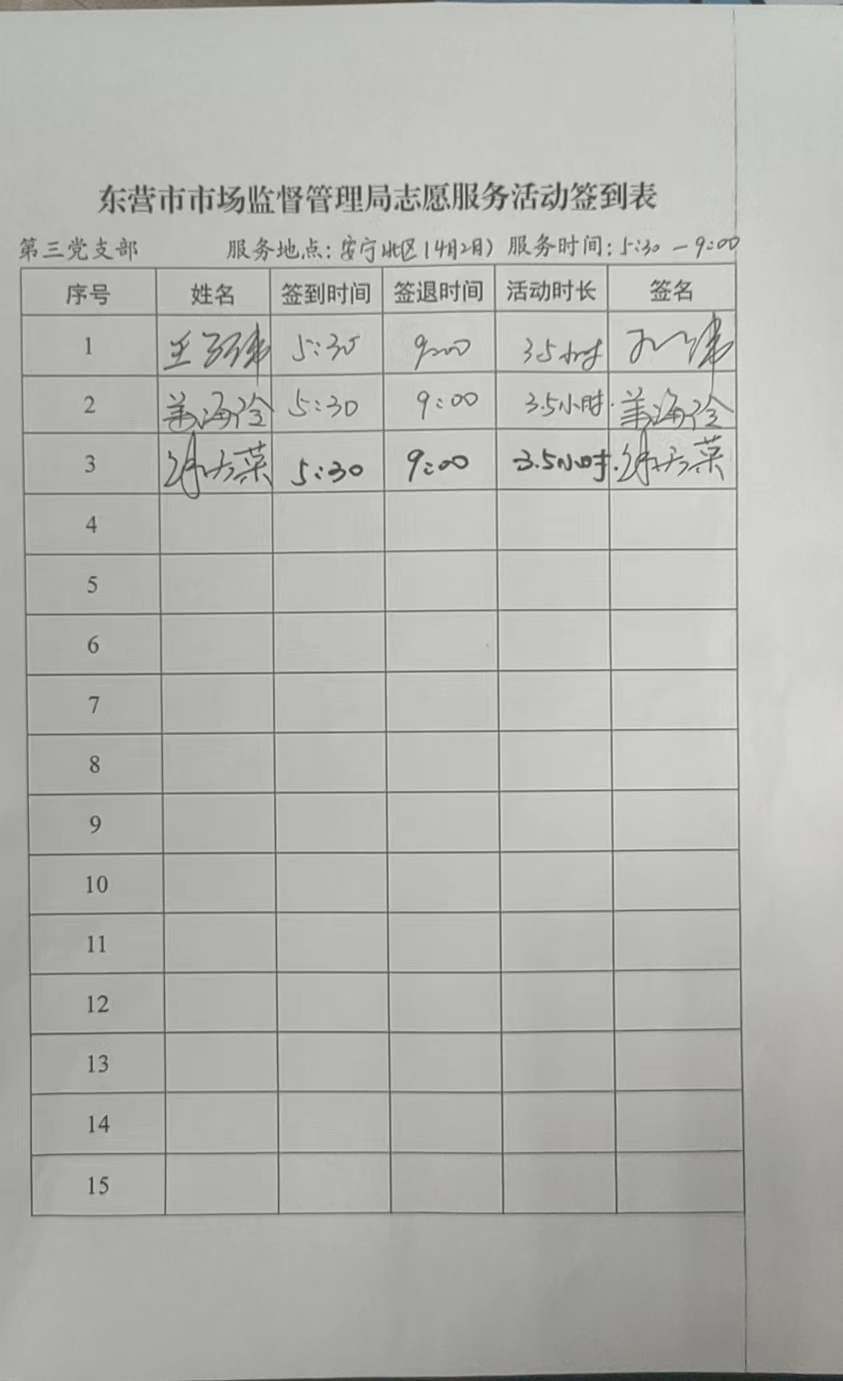 东营市市场监督管理局志愿服务活动签到表
第三党支部 服务地点：安宁北区（4月2日）服务时间：5:30－9:00
序号 姓名 签到时间 签退时间 活动时长 签名
1 王 5:30 9:00 3.5小时
2 姜海玲 5:30 9:00 3.5小时. 姜海玲
3 5:30 9:00 3.5小时.
4
5
6
7
8
9
10
11
12
13
14
15